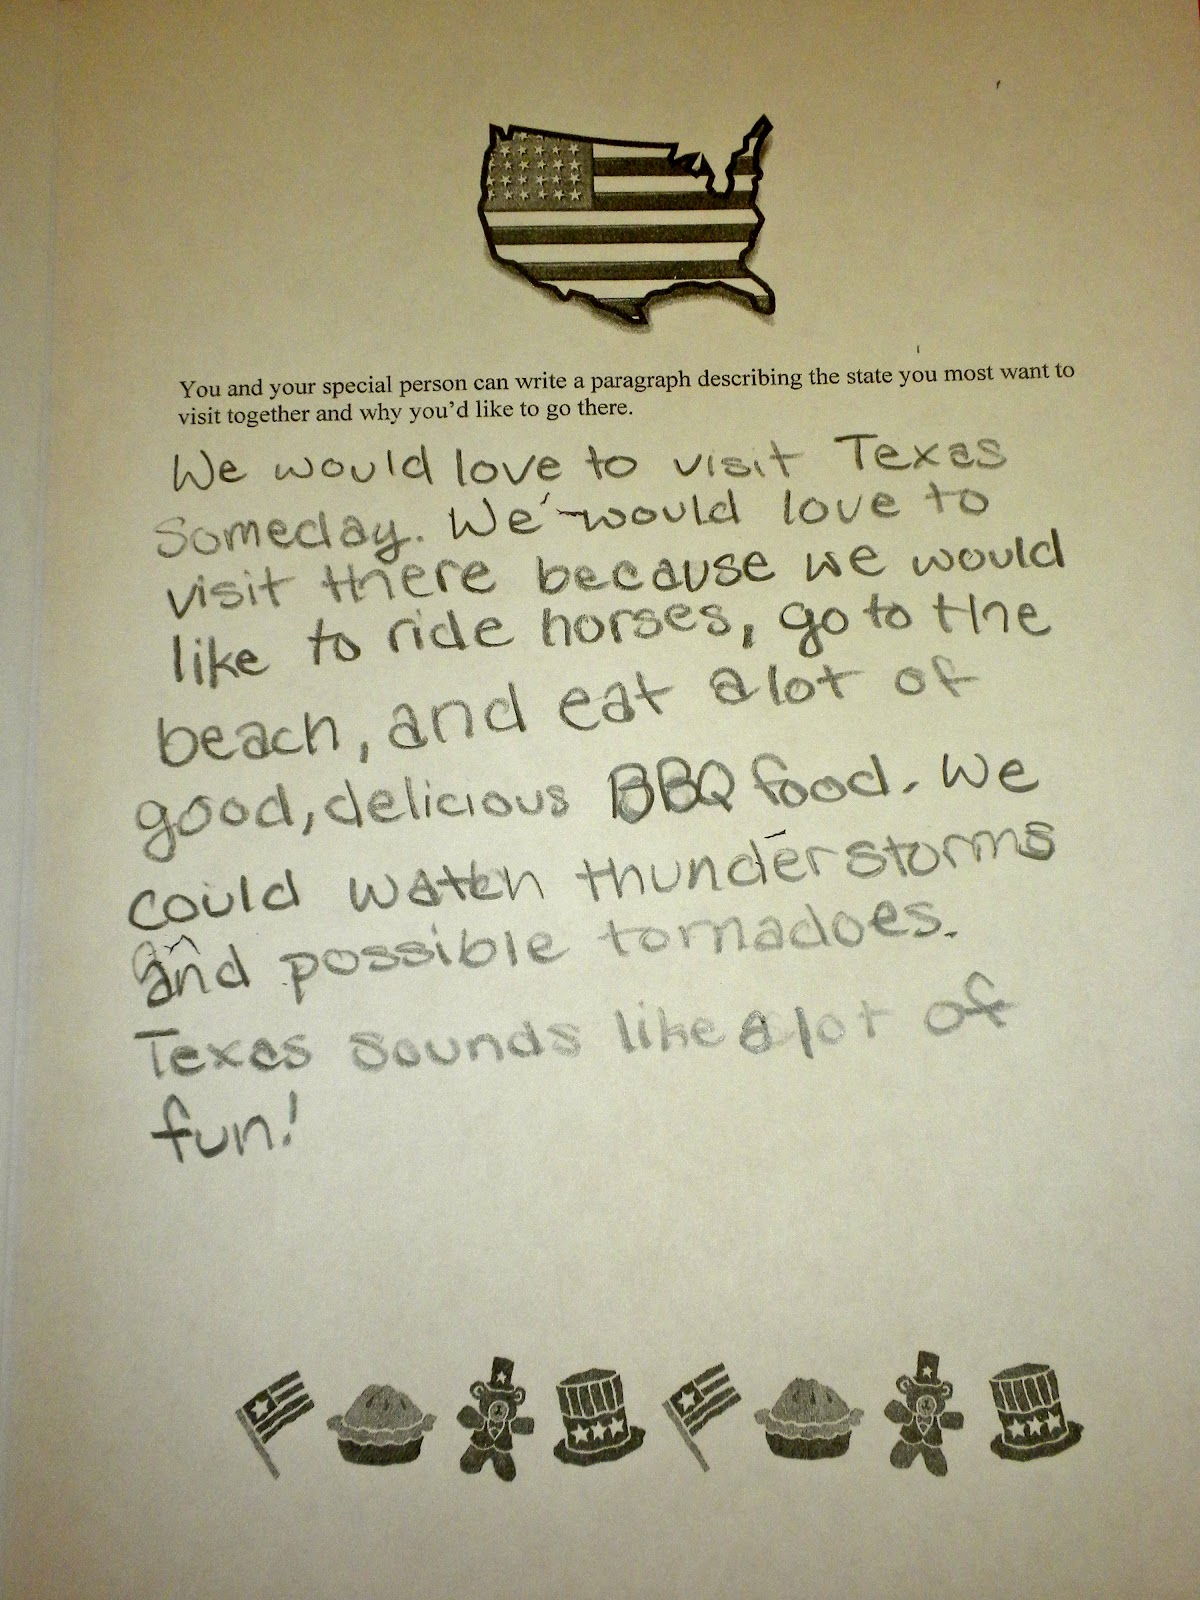 You and your special person can write a paragraph describing the state you most want to
visit together and why you'd like to go there.
We would love to visit Texas
someday. We would love to
visit there because we would
like to ride horses, go to the
beach, and eat a lot of
good, delicious BBQ food. We
could watch thunderstorms
and possible tornadoes.
Texas sounds like a lot of
fun!